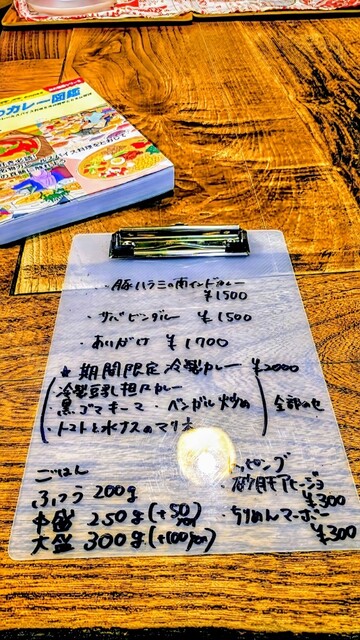 カレー図鑑
・豚ハラミの南インドカレー
¥1500
・サバビンダルー ¥1500
・あいがけ ¥1700
★期間限定 冷製カレー ¥2000
・冷製豆乳担々カレー
・黒ゴマキーマ・ベンガル炒め
・トマトと水ナスのマリネ
全部のせ
ごはん
ふつう 200g
中盛 250g(+50yen)
大盛 300g(+100yen)
トッピング
・砂肝アヒージョ
¥300
・ちりめんマーボー
¥300